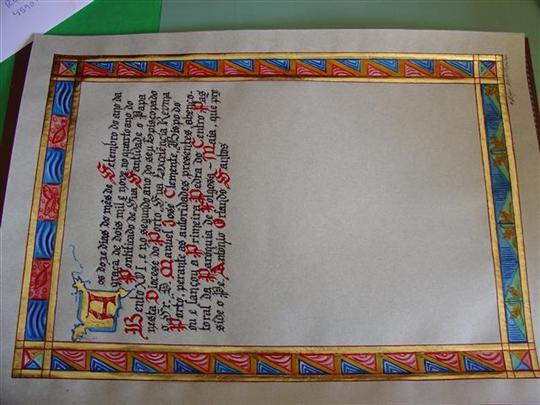 Aos doze dias do mês de Setembro do ano da
graça de dois mil e nove, no quarto ano do
Pontificado de Sua Santidade o Papa
Bento XVI, e no segundo ano do seu Episcopado
nesta Diocese do Porto, Sua Excelência Revma
o Sr. D. Manuel José Clemente, Bispo do
Porto, perante as autoridades presentes, abenço-
ou e lançou a Primeira Pedra do Centro Pas
toral da Paróquia de Folgosa - Maia, que pre
side o Pe. António Orlando Santos